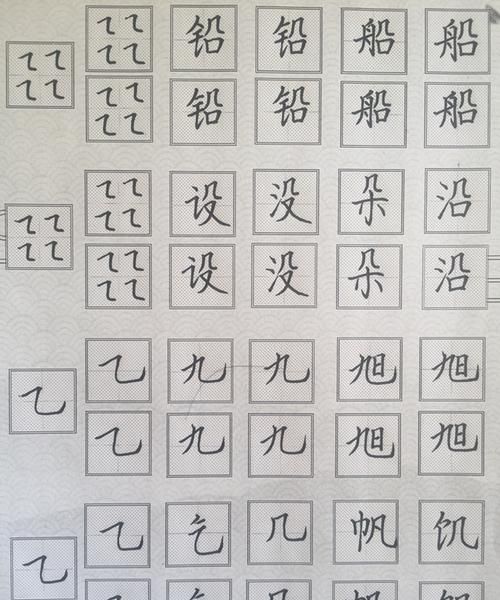 铅 铅 船 船
铅 铅 船 船
设 没 朵 沿
设 没 朵 沿
乙 乙 九 九 旭 旭
乙 九 九 旭 旭
乙 乙 乞 几 帆 饥